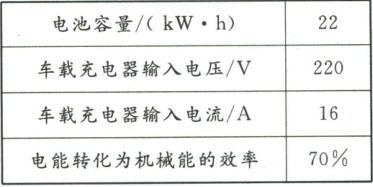 电池容量/(kW·h) 22
车载充电器输入电压/V 220
车载充电器输入电流/A 16
电能转化为机械能的效率 70%